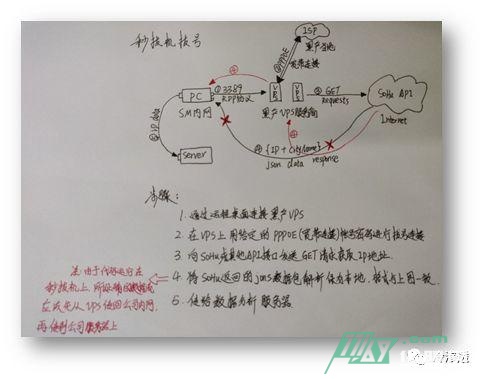 秒拨机拨号
ISP
黑产当地
②PPPOE
宽带连接
④
PC
①3389
RDP协议
SM内网
VPS
VPS
黑产VPS服务商
③GET
Requests
SoHu API
Internet
④
⑤IP data
Server
④ {IP + CityName}
json data response
步骤:
1. 通过远程桌面连接黑产VPS
2. 在VPS上用给定的PPPOE(宽带连接)账号密码进行拨号连接
3. 向SoHu或其他API接口发送GET请求获取IP地址.
4. 将SoHu返回的json数据包解析保存本地. 格式与上图一致.
5. 传给数据分析服务器
注:由于代码运行在
秒拨机上,所以
应该先从VPS传回公司内网,
再传到公司服务器上
.com